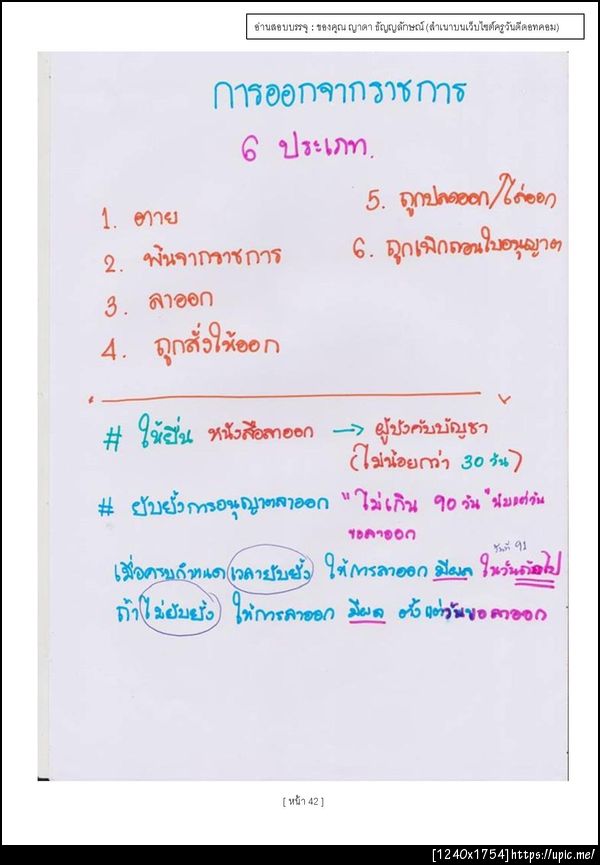 อ่านสอบบรรจุ : ของคุณ ญาดา ธัญญลักษณ์ (สำเนาบนเว็บไซต์ครูวันดีดอทคอม)
การออกจากราชการ
6 ประเภท.
1. ตาย
2. พ้นจากราชการ
3. ลาออก
4. ถูกสั่งให้ออก
5. ถูกปลดออก/ไล่ออก
6. ถูกเพิกถอนใบอนุญาต
# ให้ยื่น หนังสือลาออก → ผู้บังคับบัญชา
(ไม่น้อยกว่า 30 วัน)
# ยับยั้งการอนุญาตลาออก "ไม่เกิน 90 วัน" นับแต่วัน
ขอลาออก
วันที่ 91
เมื่อครบกำหนด เวลายับยั้ง ให้การลาออก มีผล ในวันถัดไป
ถ้า ไม่ยับยั้ง ให้การลาออก มีผล ตั้งแต่วันขอลาออก
[ หน้า 42 ]
[1240x1754]https://upic.me/